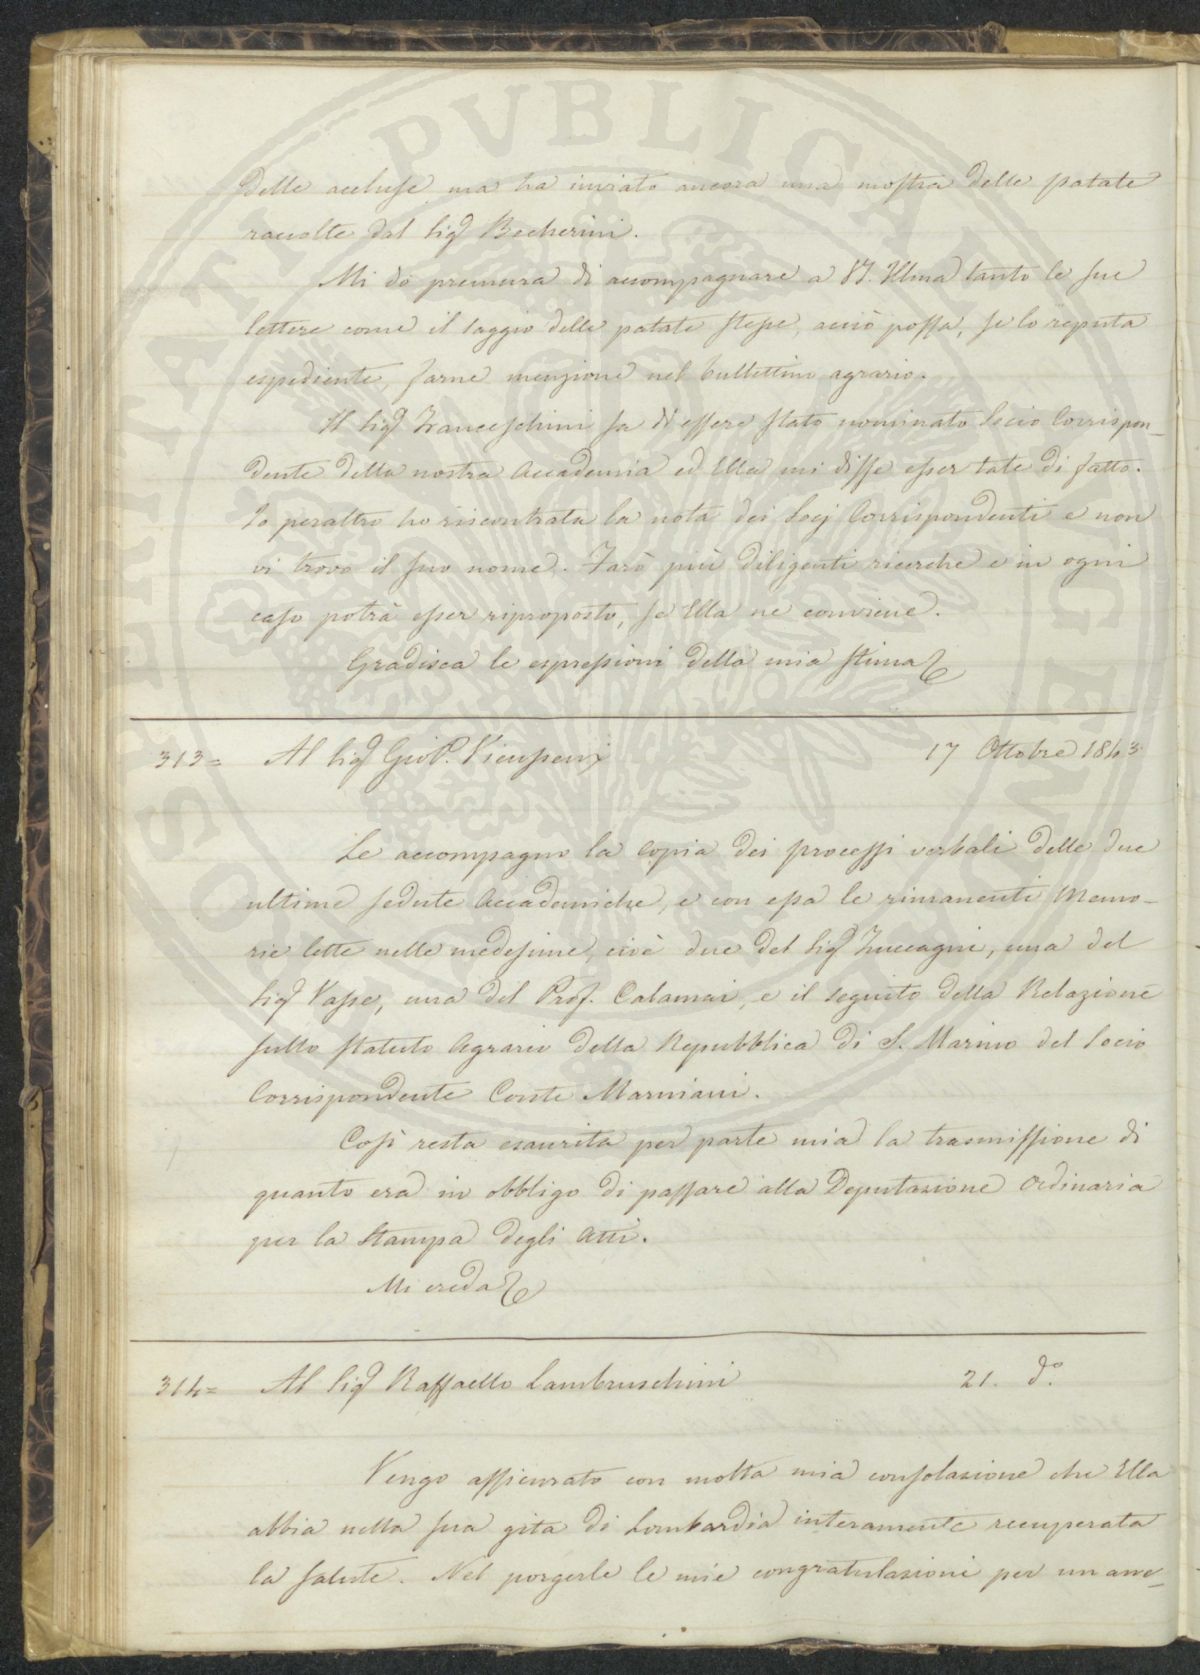 delle accluse ma ha inviato ancora una mostra delle patate
raccolte dal Sig.r Becherini.
Mi dò premura di accompagnare a VS. Illma tanto le sue
lettere come il saggio delle patate stesse, acciò possa, se lo reputa
espediente, farne menzione nel bullettino agrario.
Il Sig.r Franceschini sa di essere stato nominato Socio Corrispon-
dente della nostra Accademia ed Ella mi disse esser tale di fatto.
Io peraltro ho riscontrata la nota dei Socj Corrispondenti e non
vi trovo il suo nome. Farò più diligenti ricerche e in ogni
caso potrà esser riproposto, se Ella ne conviene.
Gradisca le espressioni della mia stima
313= Al Sig.r Gio P. Vieusseux 17 Ottobre 1843
Le accompagno la copia dei processi verbali delle due
ultime sedute Accademiche, e con essa le rimanenti Memo-
rie lette nelle medesime, cioè due del Sig.r Zuccagni, una del
Sig.r Vasse, una del Prof. Calamai, e il seguito della Relazione
sullo Statuto Agrario della Repubblica di S. Marino del Socio
Corrispondente Conte Mamiani.
Così resta esaurita per parte mia la trasmissione di
quanto era in obbligo di passare alla Deputazione Ordinaria
per la Stampa degli Atti.
Mi creda
314= Al Sig.r Raffaello Lambruschini 21. d.o
Vengo assicurato con molta mia consolazione che Ella
abbia nella sua gita di Lombardia interamente recuperata
la salute. Nel porgerle le mie congratulazioni per un avve-
PVBLICAE